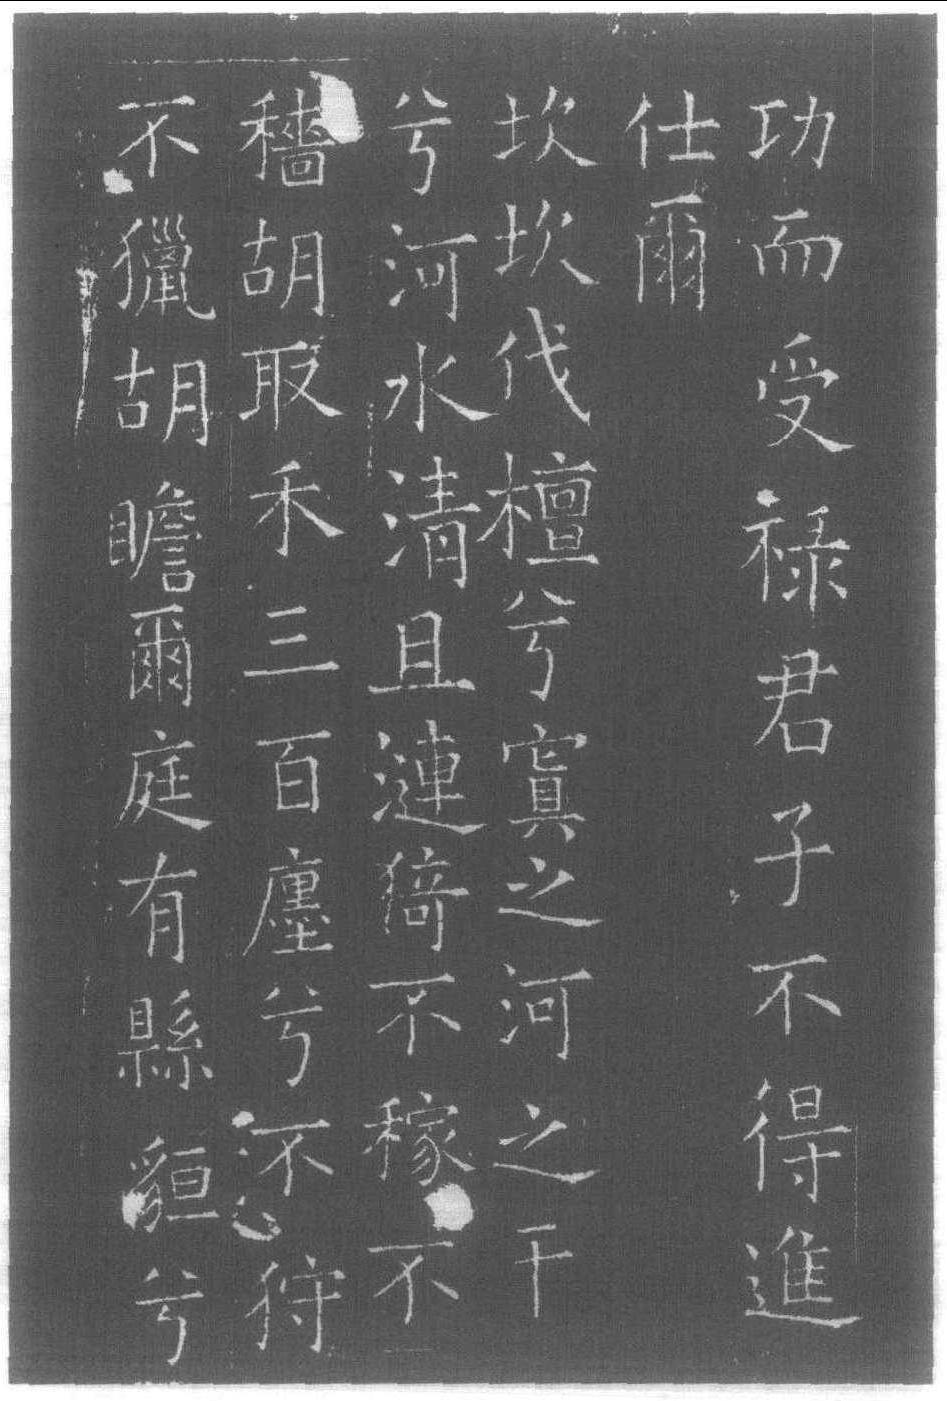 功而受祿君子不得進
仕爾
坎坎伐檀兮寘之河之干
兮河水清且漣猗不稼不
穡胡取禾三百廛兮不狩
不獵胡瞻爾庭有縣貆兮